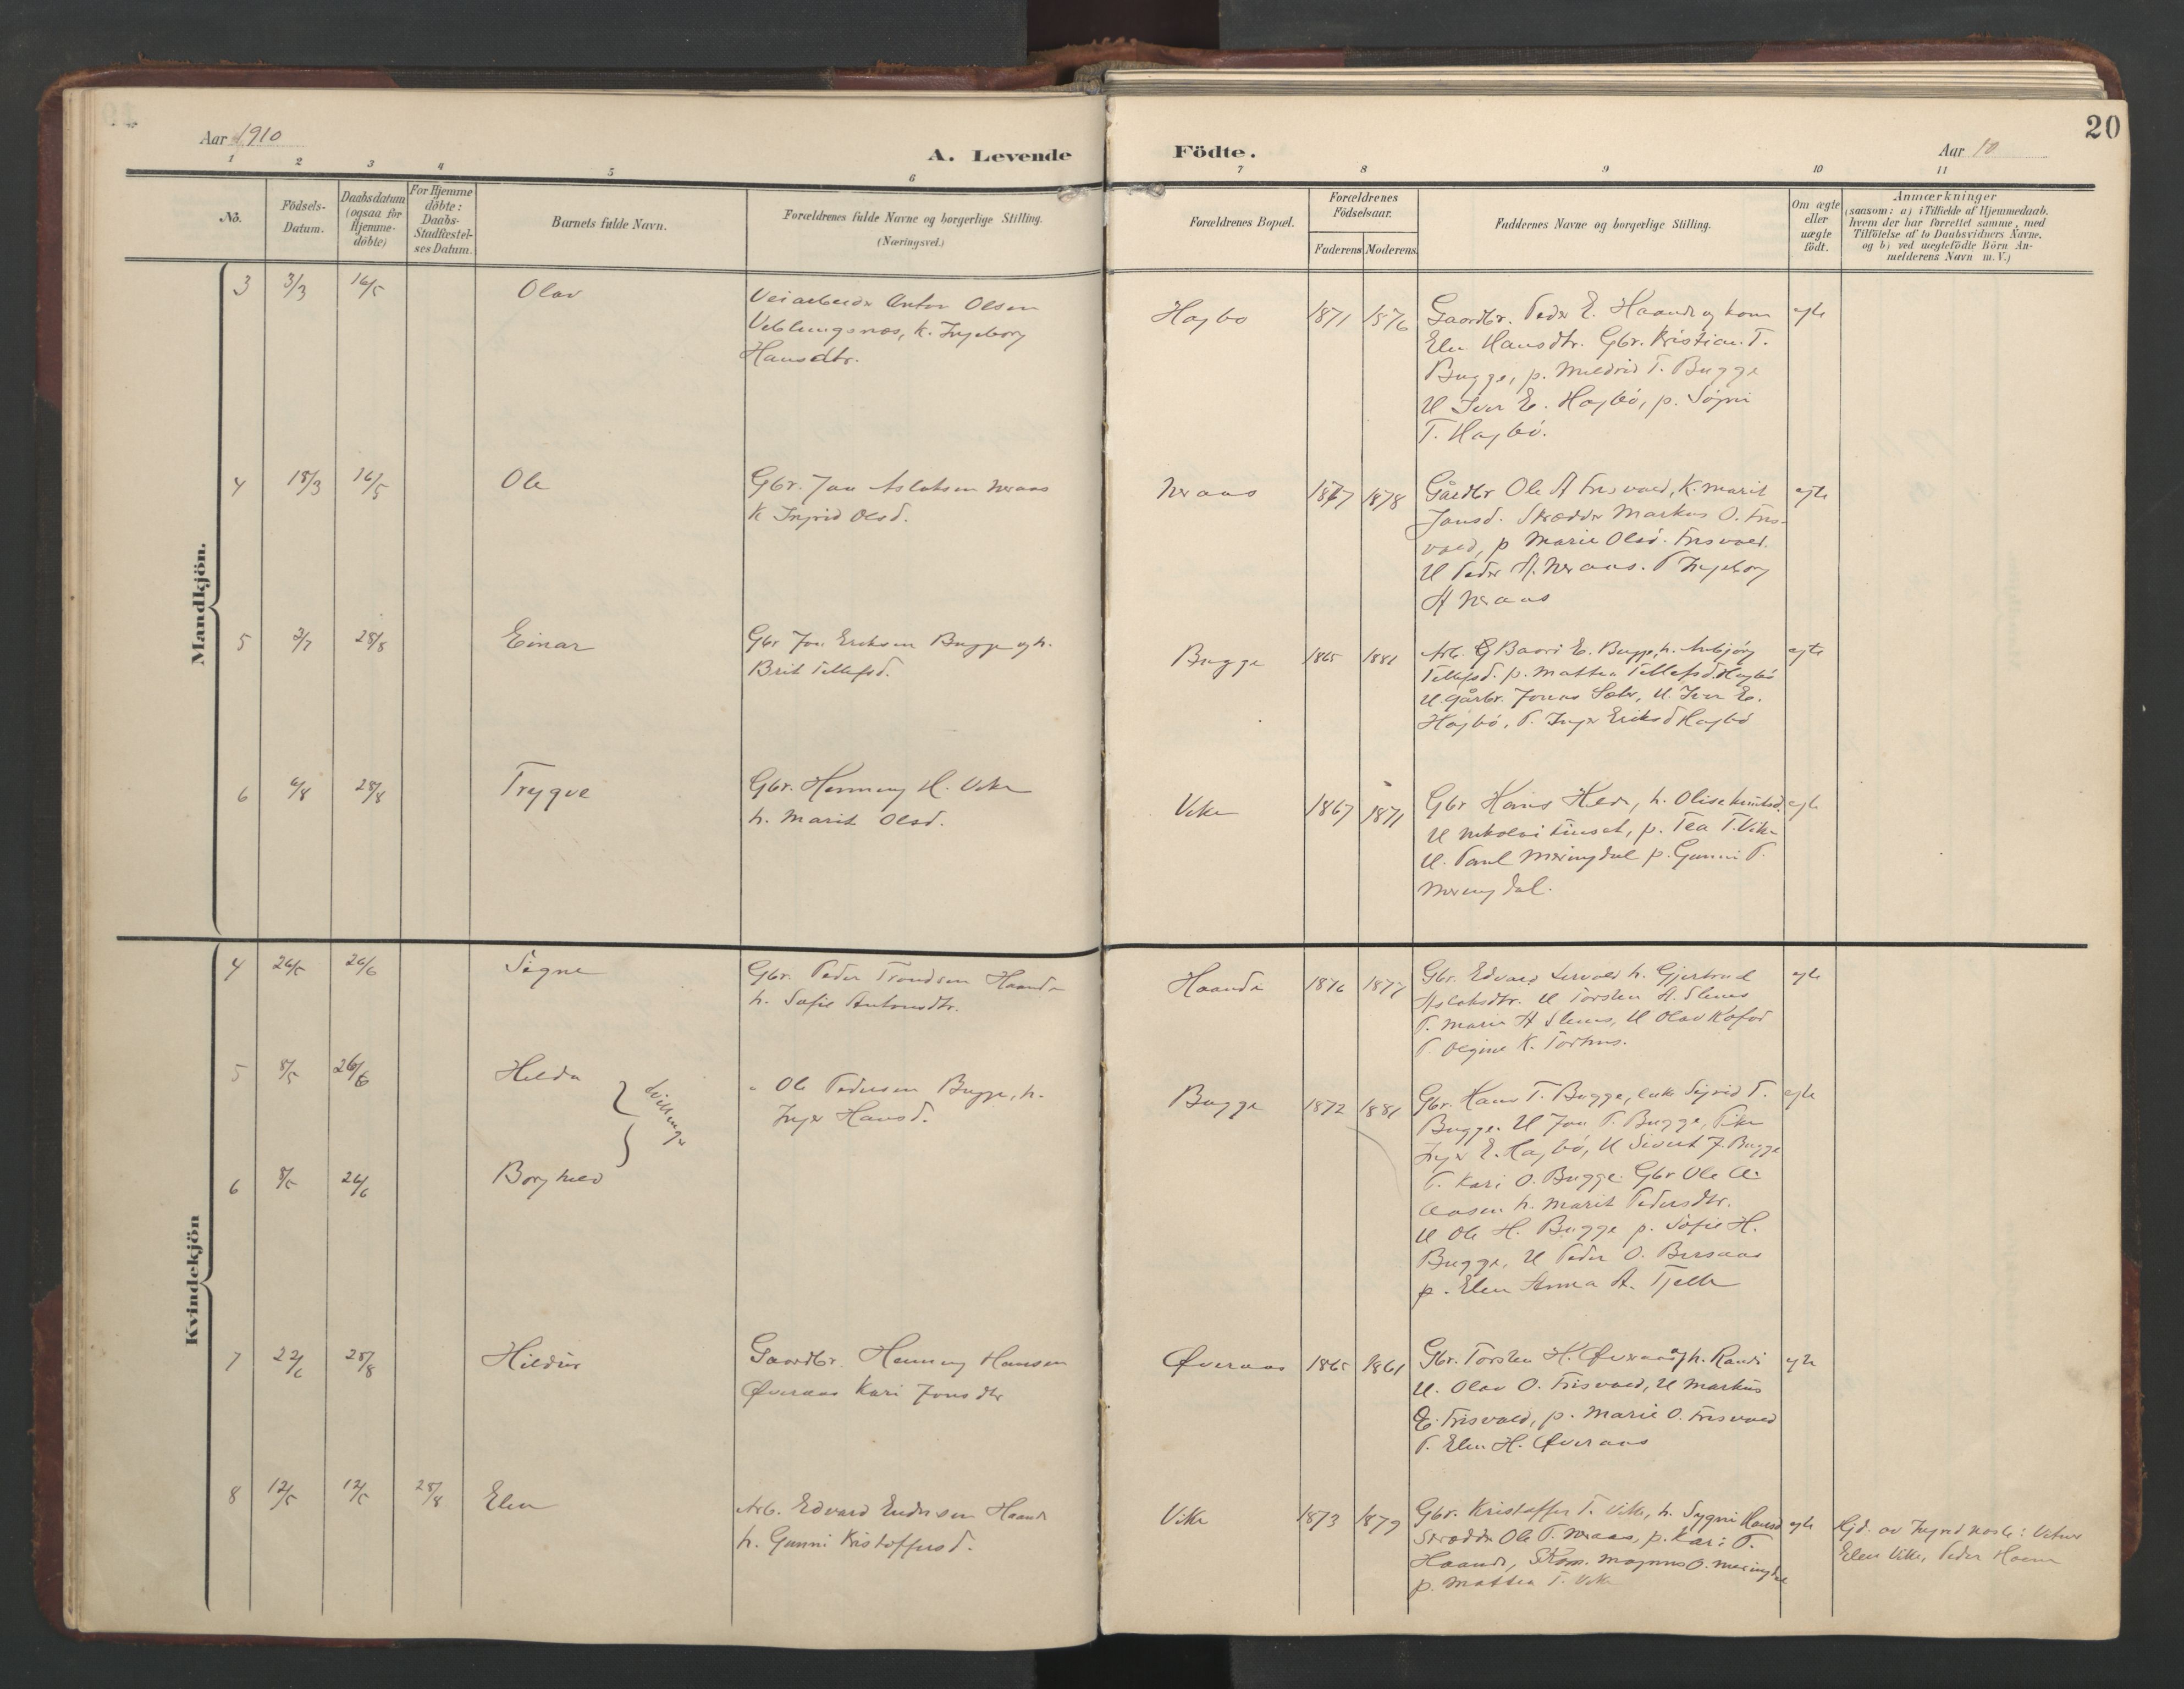 Aar 1910
A. Levende
Födte.
Aar 10
20
1 2 3 4 5 6 7 8 9 10 11
No.
Födsels-Datum.
Daabsdatum (ogsaa for Hjemme-döbte)
For Hjemme döbte: Daabs-Stadfæstel-ses Datum.
Barnets fulde Navn.
Forældrenes fulde Navne og borgerlige Stilling.
(Næringsvei.)
Forældrenes Bopæl.
Forældrenes Födselsaar.
Faderens Moderens
Faddernes Navne og borgerlige Stilling.
Om ægte eller uægte födt.
Anmærkninger
(saasom: a) i Tilfælde af Hjemmedaab.
hvem der har forrettet samme, med
Tilföielse af to Daabsvidners Navne.
og b) ved uægtefödte Börn An-
melderens Navn m.V.)
Mandkjön.
3 3/3 16/5 Olav
Veiarbeider Anton Olsen
Veblungsnæs, K. Ingeborg
Hansdtr.
1871 1876
Gaardbr. Peder E. Haande og kone
Elen Hansdtr. Gbr. Kristian T.
Bugge, p. Mildrid T. Bugge
U Iver E. Hagbö, p.
T. Hagbö.
egte
4 18/3 16/5 Ole
Gbr. Jon Aslaksen Neraas
K Ingrid Olsd.
Neraas
1867 1878
Gårdbr Ole A Frisvold, K. Marit
Jonsd. Skrædder Markus O. Fris-
vold, p Marie Olsd. Frisvold.
U Peder A. Neraas. P Ingeborg
A Neraas
egte
5 3/7 28/8 Einar
Gbr Jon Eriksen Bugge og h.
Brit Tellefsd.
Bugge
1865 1881
Arb. Baard E. Bugge, h. Anbjörg
Tellefsd. p. Mattea Tellefsd. Hagbö
U. gårbr. Jonas Sæter, U. Iver E.
Hagbö, P. Inger Eriksd Hagbö
egte
6 6/8 28/8 Trygve
Gbr. Henning H. Vike
h. Marit Olsd.
Vike
1867 1871
Gbr Hans Hilde, h. Olise Knutsd.
U Nikolai, p. Tea T. Vike
U. Paul Meringdal p. Gunni P.
Meringdal.
egte
Kvindekjön
4 26/5 26/6 Signe
Gbr. Peder Trondsen Haande
h. Sofie Antonsdtr.
Haande
1876 1877
Gbr. Edvard h. Gjertrud
Aslaksdtr. U Torsten A. Slenes
P. Marie A Slenes, U Olav Kafod
P. Olgine K. Torhus.
egte
5 8/5 26/6 Hilda
Tvillinger
" Ole Pedersen Bugge, h.
Inger Hansd.
Bugge
1872 1881
Gbr. Hans T. Bugge, enke Sigrid T.
Bugge. U Jon P. Bugge, Pike
Inger E. Hagbö, U Sivert J. Bugge
P. Kari O. Bugge. Gbr Ole A
Aasen h. Marit Pedersdtr.
U Ole H. Bugge p. Sofie H.
Bugge, U Peder O. Bersaas
p. Elen Anna A. Tjelle
egte
6 8/5 26/6 Borghild
7 22/6 28/8 Hildur
Gaardbr. Henning Hansen
Øveraas Kari Jonsdtr
Øveraas
1865 1861
Gbr. Torsten H. Øveraas og h. Randi
U. Olav O. Frisvold, U Markus
O. Frisvold, p. Marie O. Frisvold
P. Elen H. Øveraas
egte
8 12/5 12/5 28/8 Elen
Arb. Edvard Endresen Haande
h. Gunni Kristoffersd.
Vike
1873 1879
Gbr. Kristoffer T. Vike, h. Sygni Hansd
Skrædder Ole P. Neraas, p. Kari P.
Haande, Skom. Magnus O. Meringdal
p. Mattea T. Vike
egte
Hjd. av Ingrid: Vitner
Elen Vike, Peder Hoem